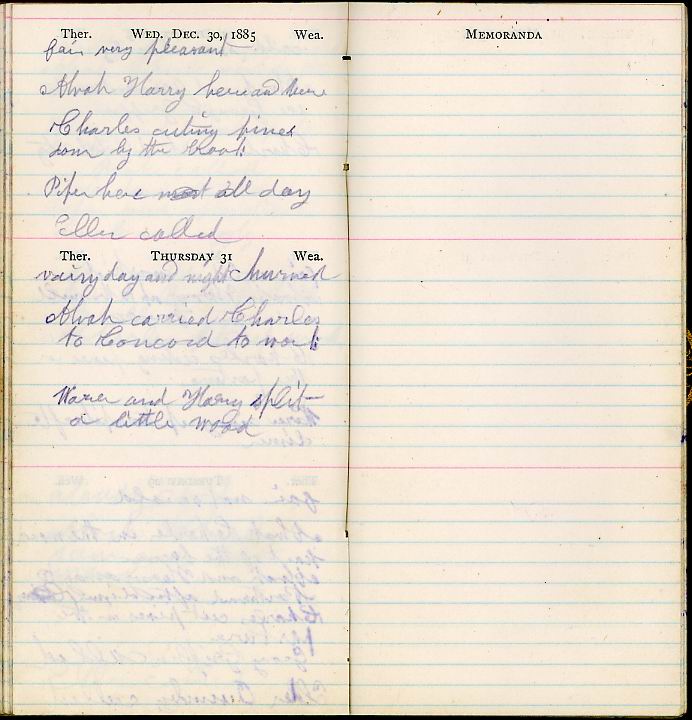 Ther. WED. DEC. 30, 1885 Wea.
fair very pleasant
Alvah Harry here and there
Charles cuting pines
som by the brook
Piper here most all day
Eller called
Ther. THURSDAY 31 Wea.
rainy day and night churned
Alvah carried Charles
to Concord to work
Warer and Harry split
a little wood
MEMORANDA